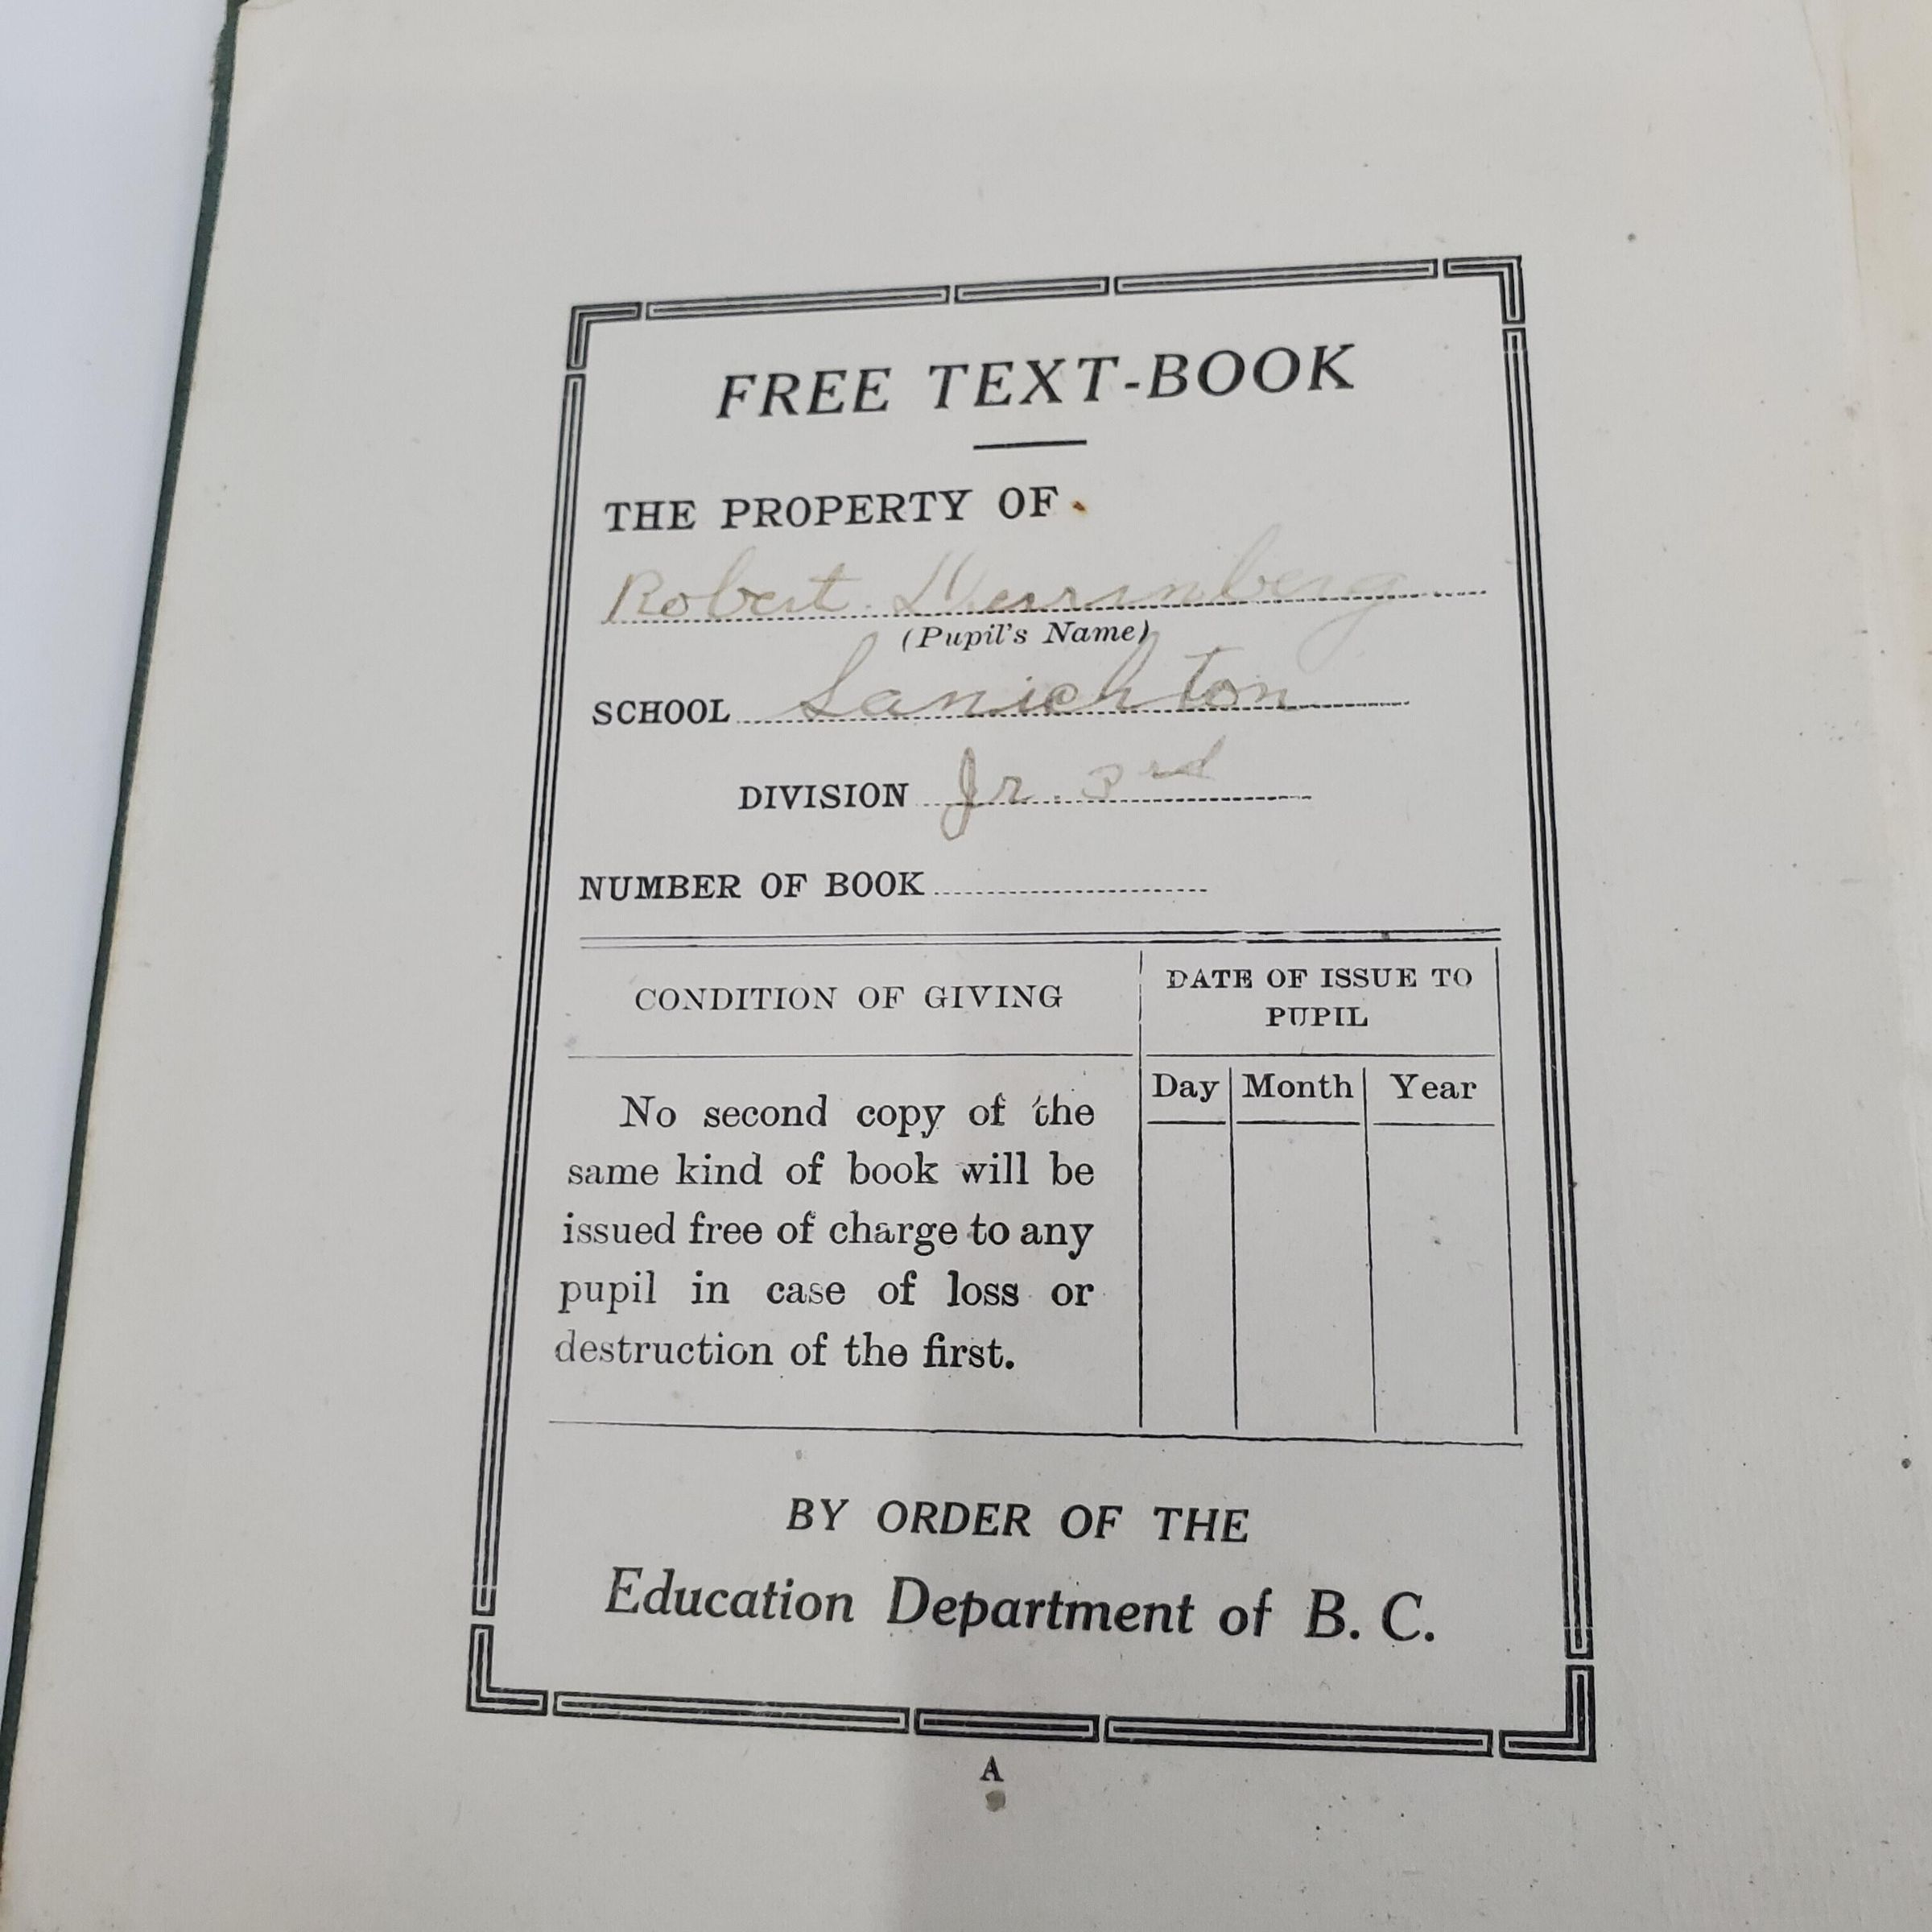 FREE TEXT-BOOK
THE PROPERTY OF
Robert
(Pupil's Name)
SCHOOL Sanichton
DIVISION Jr. 3rd
NUMBER OF BOOK
CONDITION OF GIVING
DATE OF ISSUE TO
PUPIL
Day Month Year
No second copy of the
same kind of book will be
issued free of charge to any
pupil in case of loss or
destruction of the first.
BY ORDER OF THE
Education Department of B. C.
A